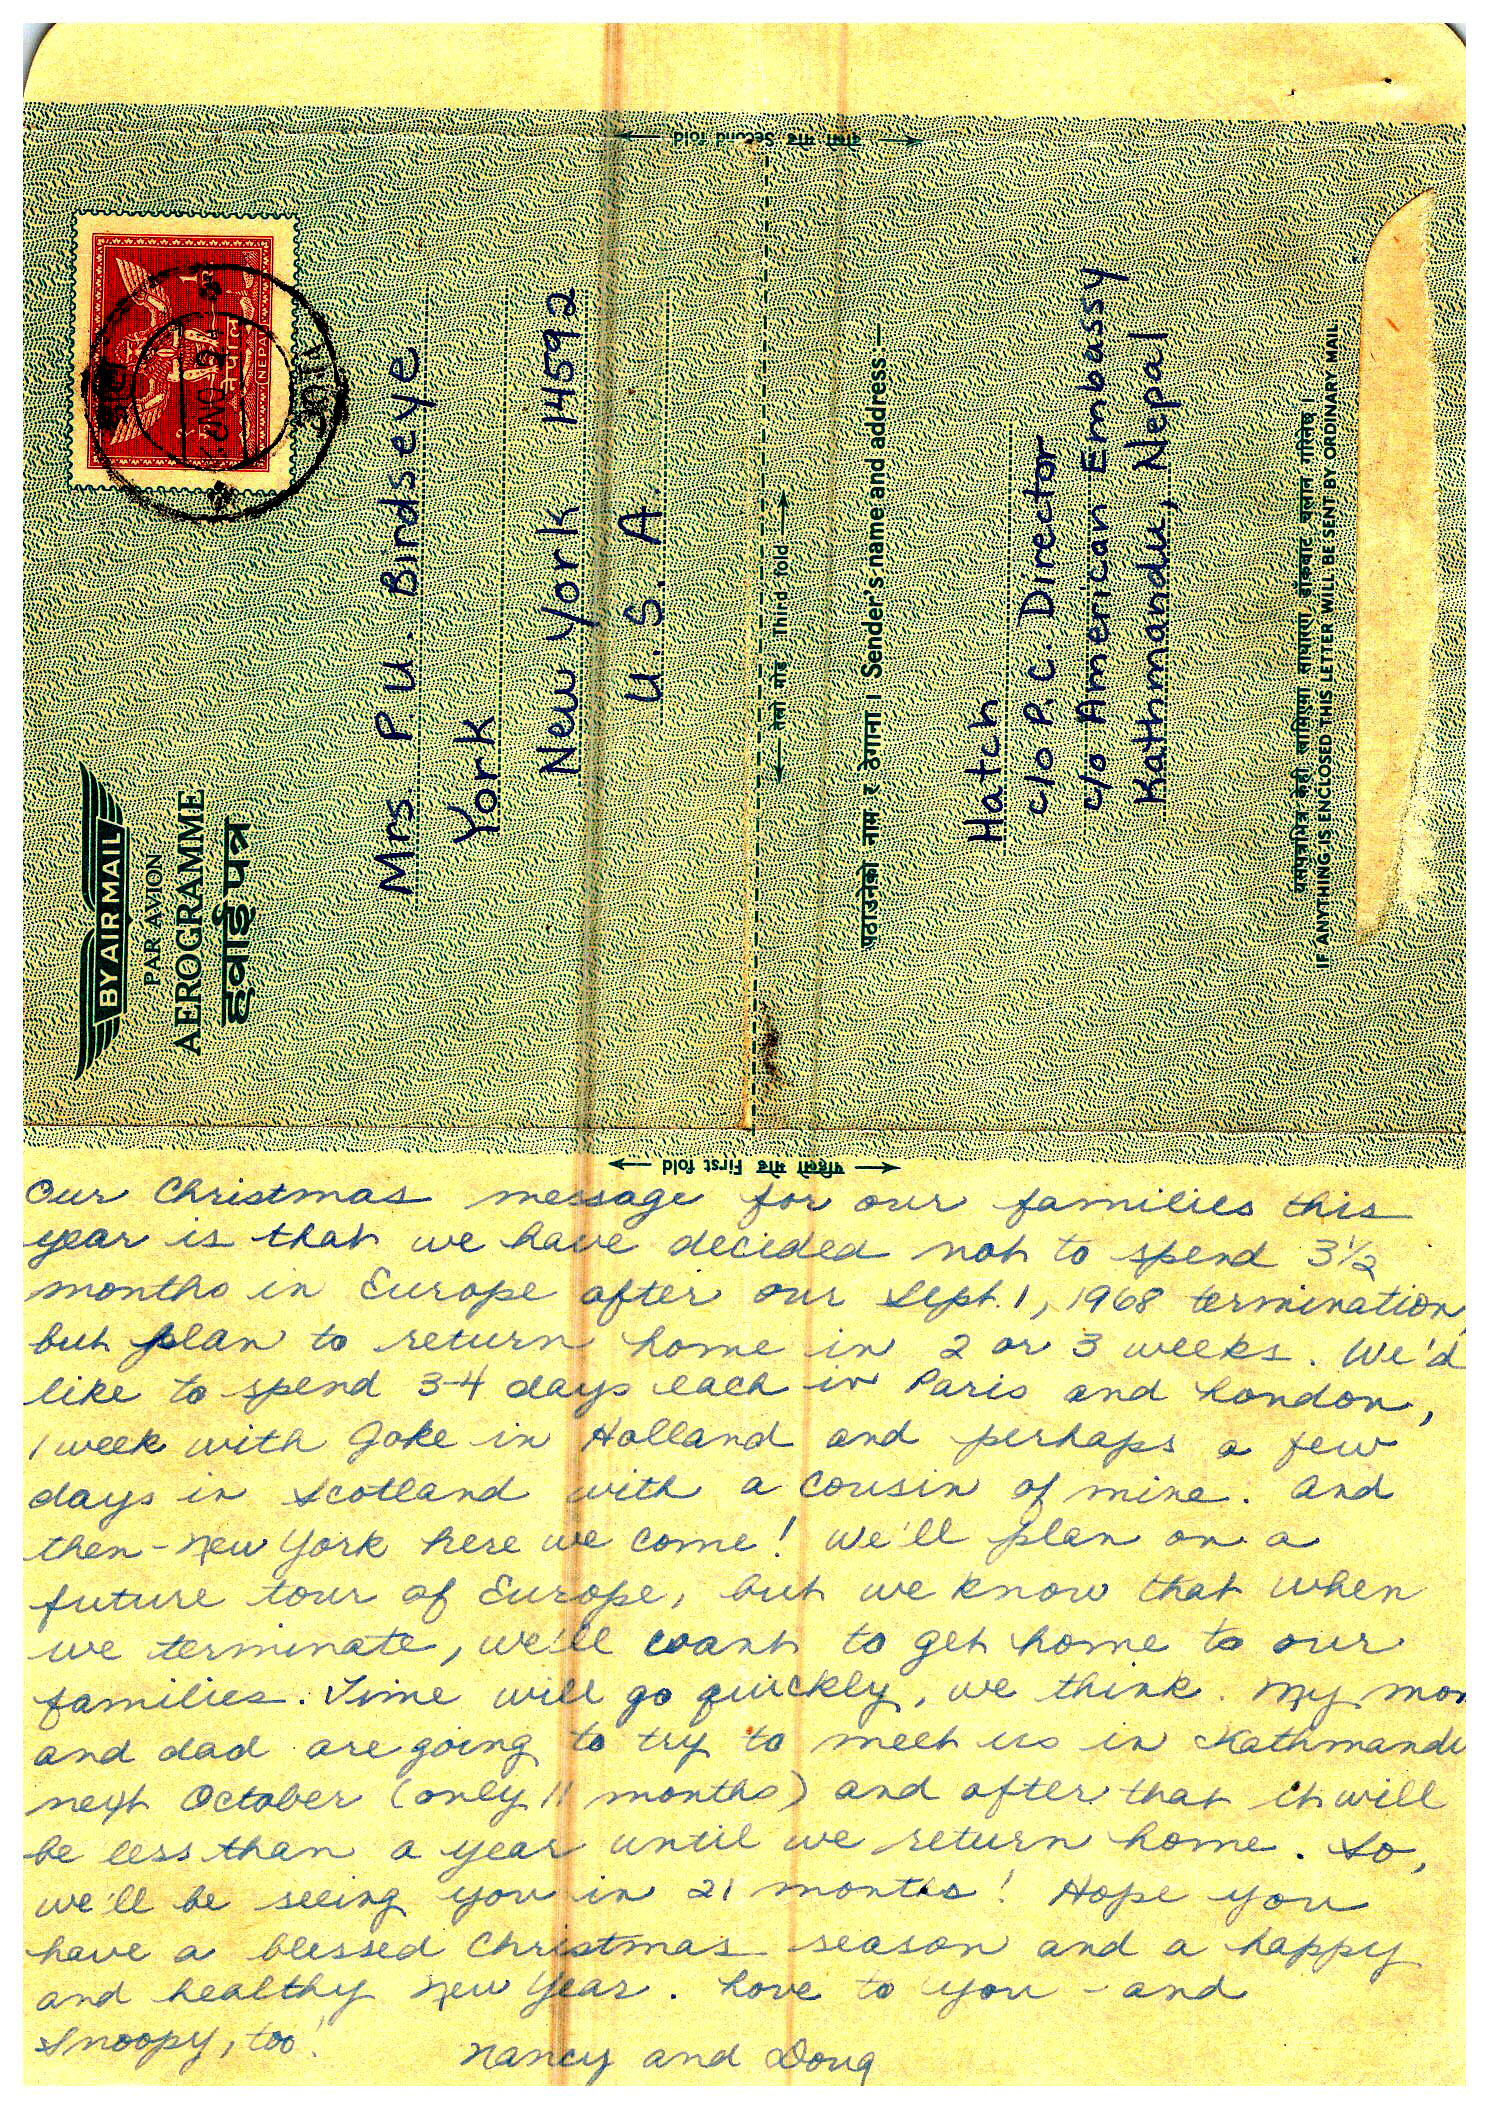 दोस्रो मोड Second fold
BY AIR MAIL
PAR AVION
AEROGRAMME
हवाई पत्र
नेपाल
NEPAL
Mrs. P. U. Birdseye
York
New York 14592
U. S. A.
तेस्रो मोड Third fold
पठाउनेको नाम र ठेगाना । Sender's name and address —
Hatch
c/o P. C. Director
c/o American Embassy
Kathmandu, Nepal
यसपत्रभित्र केही
IF ANYTHING IS ENCLOSED THIS LETTER WILL BE SENT BY ORDINARY MAIL
पहिलो मोड First fold
Our Christmas message for our families this
year is that we have decided not to spend 3½
months in Europe after our Sept. 1, 1968 termination,
but plan to return home in 2 or 3 weeks. We'd
like to spend 3-4 days each in Paris and London,
1 week with Joke in Holland and perhaps a few
days in Scotland with a cousin of mine. And
then - New York here we come! We'll plan on a
future tour of Europe, but we know that when
we terminate, we'll want to get home to our
families. Time will go quickly, we think. My mom
and dad are going to try to meet us in Kathmandu
next October (only 11 months) and after that it will
be less than a year until we return home. So,
we'll be seeing you in 21 months! Hope you
have a blessed Christmas season and a happy
and healthy New Year. Love to you - and
Snoopy, too!
Nancy and Doug